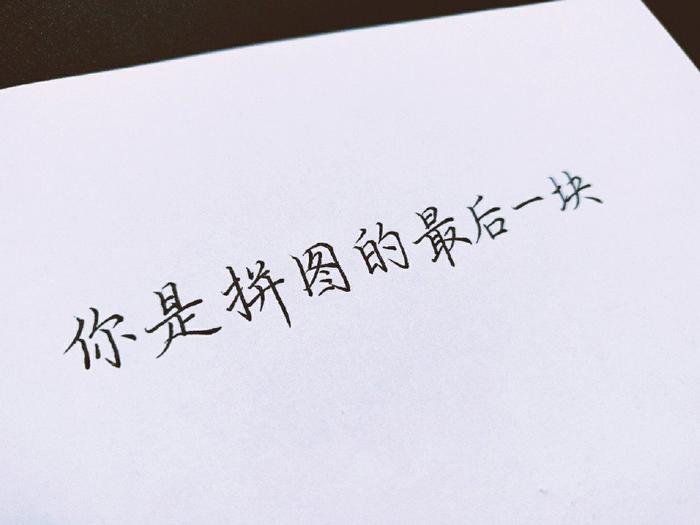 你是拼图的最后一块